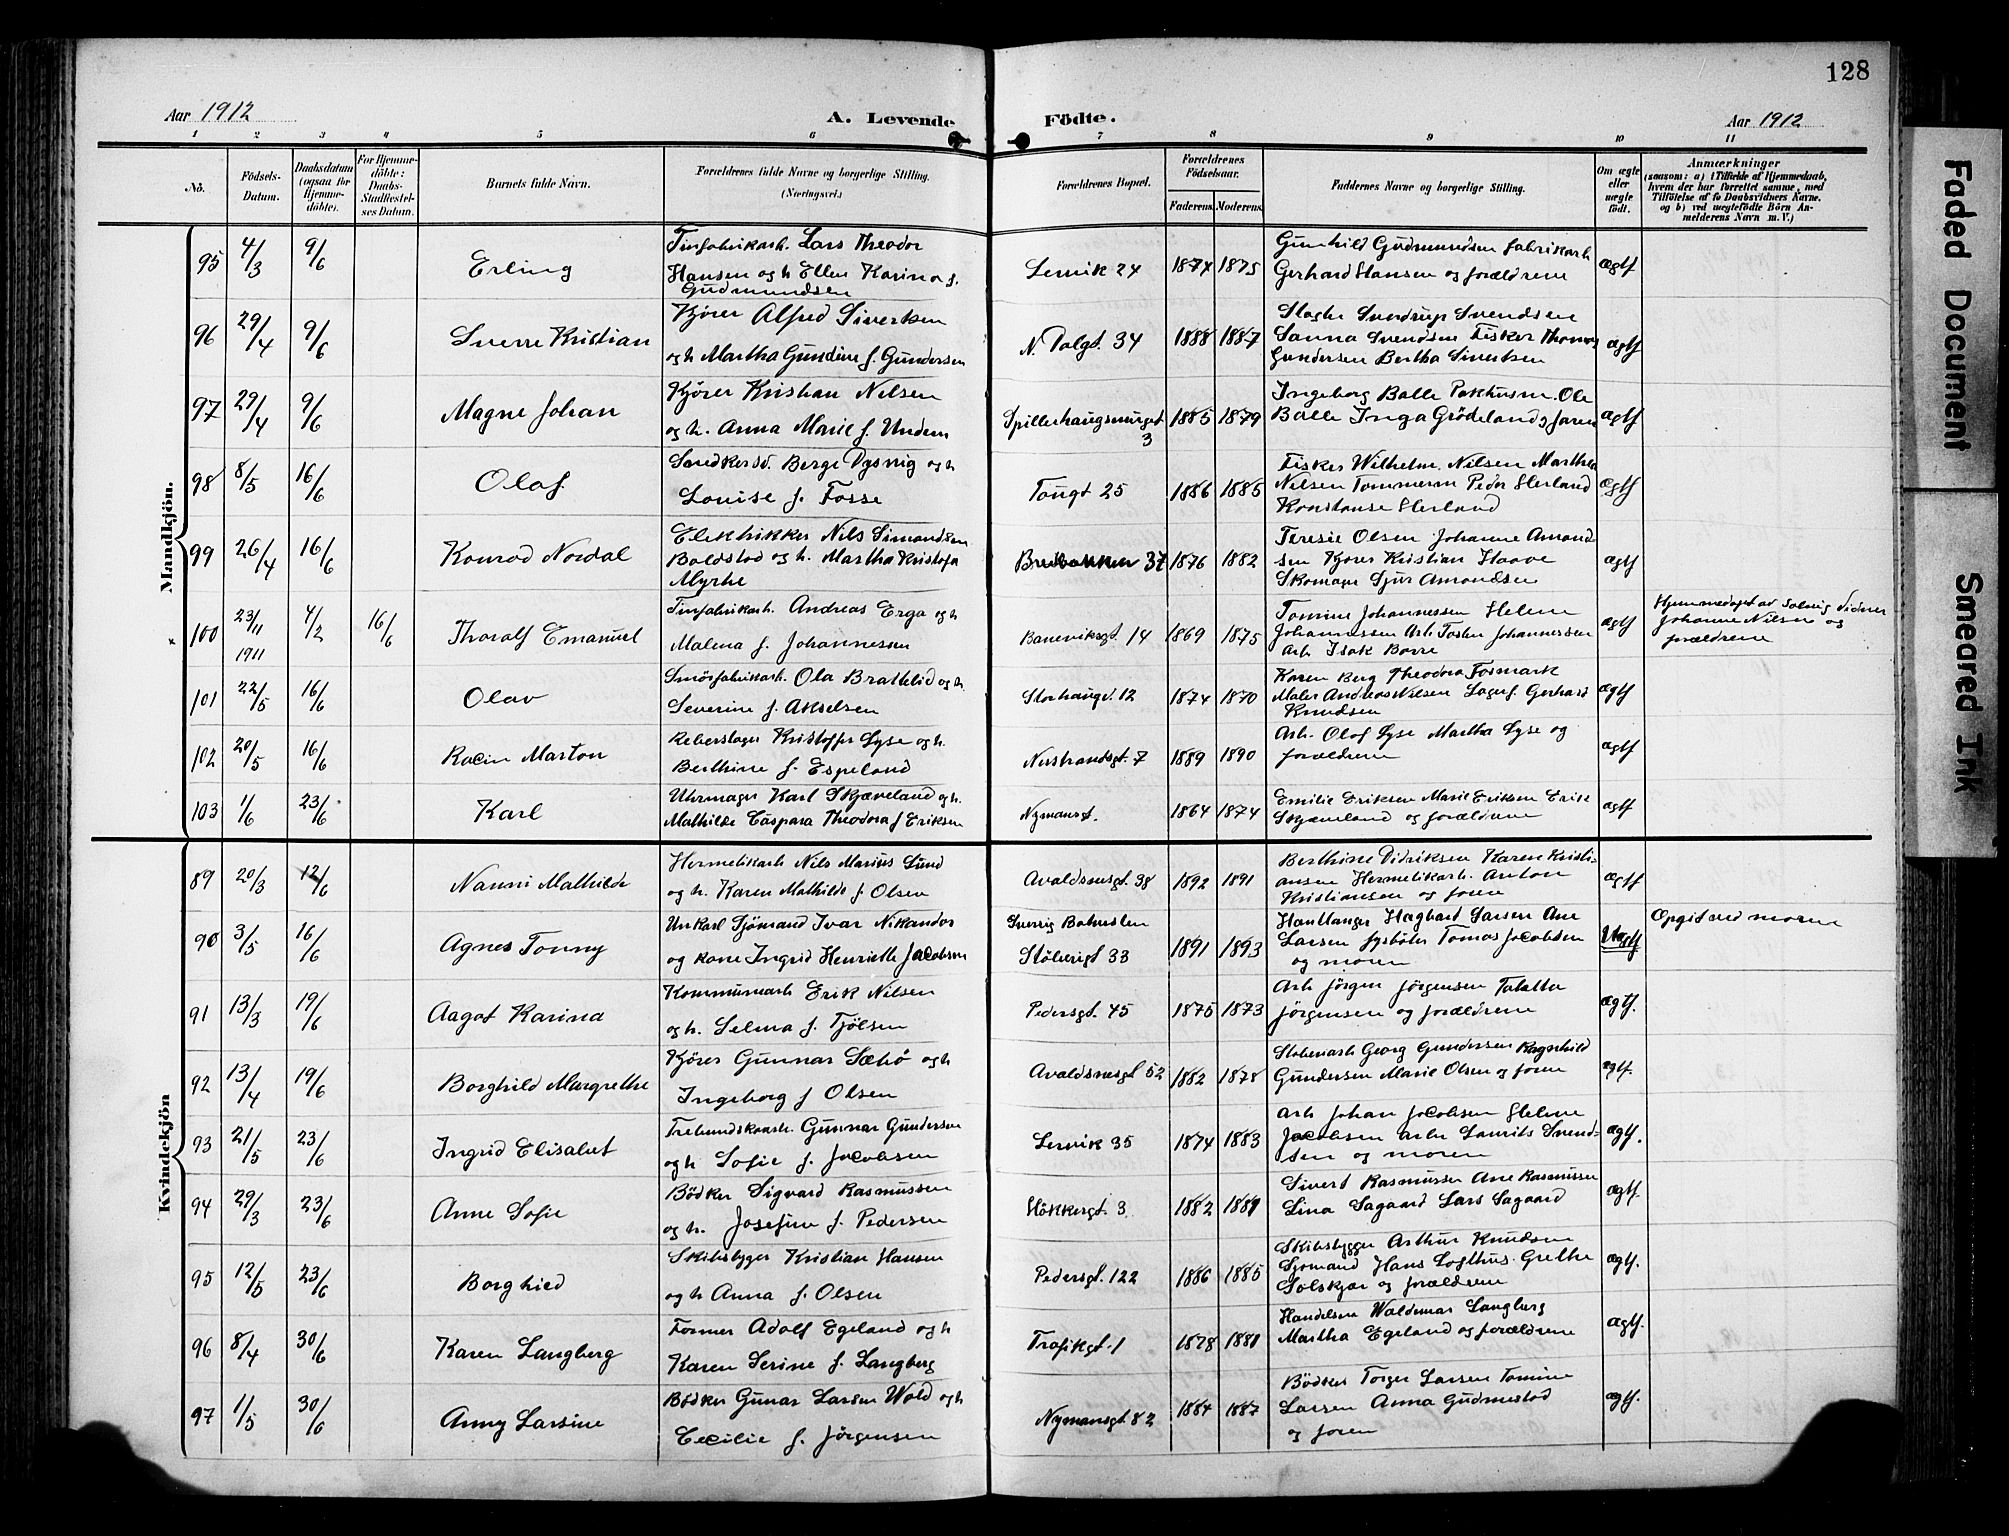 128
Aar 1912
A. Levende
Födte.
Aar 1912
1 2 3 4 5 6 7 8 9 10 11
No.
Födsels-Datum.
Daabsdatum (ogsaa for Hjemme-döbte).
For Hjemme-döbte: Daabs-Stadfestel-ses Datum.
Barnets fulde Navn.
Forældrenes fulde Navne og borgerlige Stilling. (Næringsvei.)
Forældrenes Bopæl.
Forældrenes Födselsaar.
Faderens. Moderens.
Faddernes Navne og borgerlige Stilling.
Om ægte eller uægte födt.
Anmærkninger
(saasom: a) i Tilfælde af Hjemmedaab,
hvem der har forrettet samme, med
Tilföielse af to Daabsvidners Navne.
og b) ved uægtefödte Börn An-
melderens Navn m. V.)
Mandkjön.
95 4/3 9/6 Erling
Tinfabrikarb. Lars Theodor
Hansen og h. Ellen Karina f.
Gudmundsen
Lervik 24 1874 1875
Gunhild Gudmundsen fabrikarb
Gerhard Hansen og forældrene
ægtf
96 29/4 9/6 Sverre Kristian
Kjører Alfred Sivertsen
og h Martha Gundine f. Gundersen
N. Dalgt. 34 1888 1887
Sanna Svendsen Fisker Thomas
Gundersen Bertha Sivertsen
ægtf
97 29/4 9/6 Magne Johan
Kjører Kristian Nilsen
og h. Anna Marie f. Undem
Spilderhaugsmuget 3 1885 1879
Ingeborg Balle Pakhusm. Ole
Balle Inga Grödeland og foren
ægtf
98 8/5 16/6 Olaf
Berge Dysvig og h
Louise f. Fosse
Tougt 25 1886 1885
Fisker Wilhelm Nilsen Martha
Nilsen Tømmerm Peder Herland
Konstanse Herland
ægtf
99 26/4 16/6 Konrad Nordal
Elektrikker Nils Simondsen
Boldstad og h. Martha Kristofa
Myrhe
Bredbakken 37 1876 1882
Teresie Olsen Johanne Amond
sen Kjører Kristian Haave
Skomager Sjur Amondsen
ægtf
100 23/11 1911 4/2 16/6 Thoralf Emanuel
Tinfabrikarb. Andreas Erga og h
Malena f. Johannessen
Baneviksgt. 14 1869 1875
Tomine Johannessen Helene
Johannessen Arb Torsten Johannessen
Arb Isak Borre
ægtf
Hjemmedøpt av Solveig Vidner
Johanne Nilsen og
forældrene
101 22/5 16/6 Olav
Smörfabrikarb. Ola Brattelid og h.
Severine f. Akselsen
Storhaugt. 12 1874 1870
Karen Berg Theodora Fosmark
Maler Andreas Nilsen Lagerf. Gerhard
Knudsen
ægtf
102 20/5 16/6 Racin Marton
Reberslager Kristoffer Lyse og h.
Berthine f. Espeland
Nerstrandsgt. 7 1889 1890
Arb. Olaf Lyse Martha Lyse og
forældrene
ægtf
103 1/6 23/6 Karl
Uhrmager Karl Skjæveland og h.
Mathilde Caspara Theodora f Eriksen
Nymansgt. 1864 1874
Emilie Eriksen Marie Eriksen Erik
Skjæveland og forældrene
ægtf
Kvindekjön
89 20/3 12/6 Nanni Mathilde
Hermetikarb Nils Marius Lund
og h. Karen Mathilde f Olsen
Avaldsnesgt. 38 1892 1891
Berthine Didriksen Karen Kristi-
ansen Hermetikarb. Anton
Kristiansen og foren
ægtf
90 3/5 16/6 Agnes Tonny
Unkarl Sjömand Ivar Nikandor
og kone Ingrid Henriette Jacobsen
Sverrig
Stöberigt 33 1891 1893
Haghart Larsen Ane
Larsen Tomas Jacobsen
og moren
Uægtf
Opgit ved moren
91 13/3 19/6 Aagot Karina
Kommunearb Erik Nilsen
og h. Selma f. Tjölsen
Pedersgt. 45 1875 1873
Arb Jörgen Jörgensen Tabetha
Jörgensen og forældrene
ægtf.
92 13/4 19/6 Borghild Margrethe
Kjörer Gunnar Sæbø og h
Ingeborg f Olsen
Avaldsnesgt 52 1882 1878
Stoberiarb Georg Gundersen Ragnhild
Gundersen Marie Olsen og foren
ægtf.
93 21/5 23/6 Ingrid Elisabet
Gunnar Gundersen
og h Sofie f. Jacobsen
Lervik 35 1874 1883
Arb Johan Jacobsen Helene
Jacobsen Arbr Laurits Svend-
sen og moren
ægtf.
94 29/3 23/6 Anne Sofie
Bödker Sigvard Rasmussen
og h. Josefine f. Pedersen
Hökkergt. 3 1882 1881
Sivert Rasmussen Ane Rasmussen
Lina Sagaard Lars Sagaard
ægtf.
95 12/5 23/6 Borghied
Skibsbyger Kristian Hansen
og h Anna f. Olsen
Pedersgt. 122 1886 1885
Skibsbygger Arthur Knudsen
Sjømand Hans Lofthus. Grethe
Solskjær og forældrene
ægtf.
96 8/4 30/6 Karen Langberg
Former Adolf Egeland og h
Karen Serine f. Langberg
Trafikgt. 1 1878 1881
Handelsm Waldemar Langberg
Martha Egeland og forældrene
ægtf.
97 1/5 30/6 Anny Larsine
Bödker Gunar Larsen Wold og h
Cecilie f. Jörgensen
Nymansgt 82 1884 1887
Bödker Torger Larsen Tomine
Larsen Anna Gudmestad
og foren
ægtf.
Faded Document
Smeared Ink